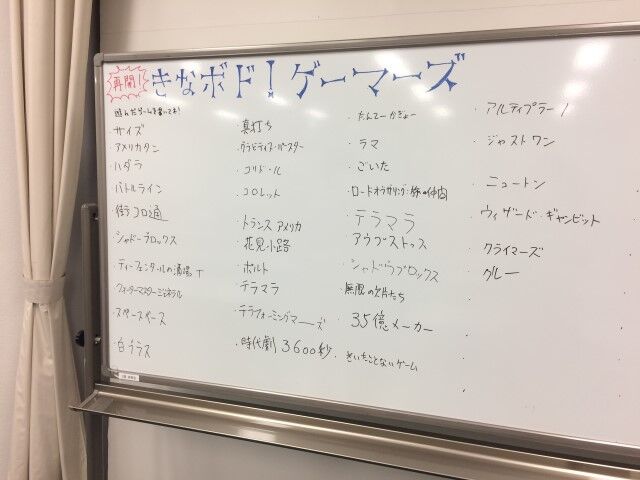 再開!
きなボド!ゲーマーズ
遊んだゲームを書いてネ!
・サイズ
・アメリカタン
・ハダラ
・バトルライン
・街コロ通
・シャドーブロックス
・ティーフェンタールの酒場 T
・クォーターマスタージェネラル
・スペースベース
・白プラス
・真打ち
・グラビティ・スーパースター
・コリドール
・コロレット
・トランスアメリカ
・花見小路
・ボルト
・テラマラ
・テラフォーミングマーーズ
・時代劇3600秒
・たんてーかぎょー
・ラマ
・ごいた
・ロードオブザリング:旅の仲間
・テラマラ
・アウブストゥス
・シャドウブロックス
・無限の欠片たち
・35億メーカー
・きいたことないゲーム
・アルティプラーノ
・ジャストワン
・ニュートン
・ウィザード・ギャンビット
・クライマーズ
・クルー